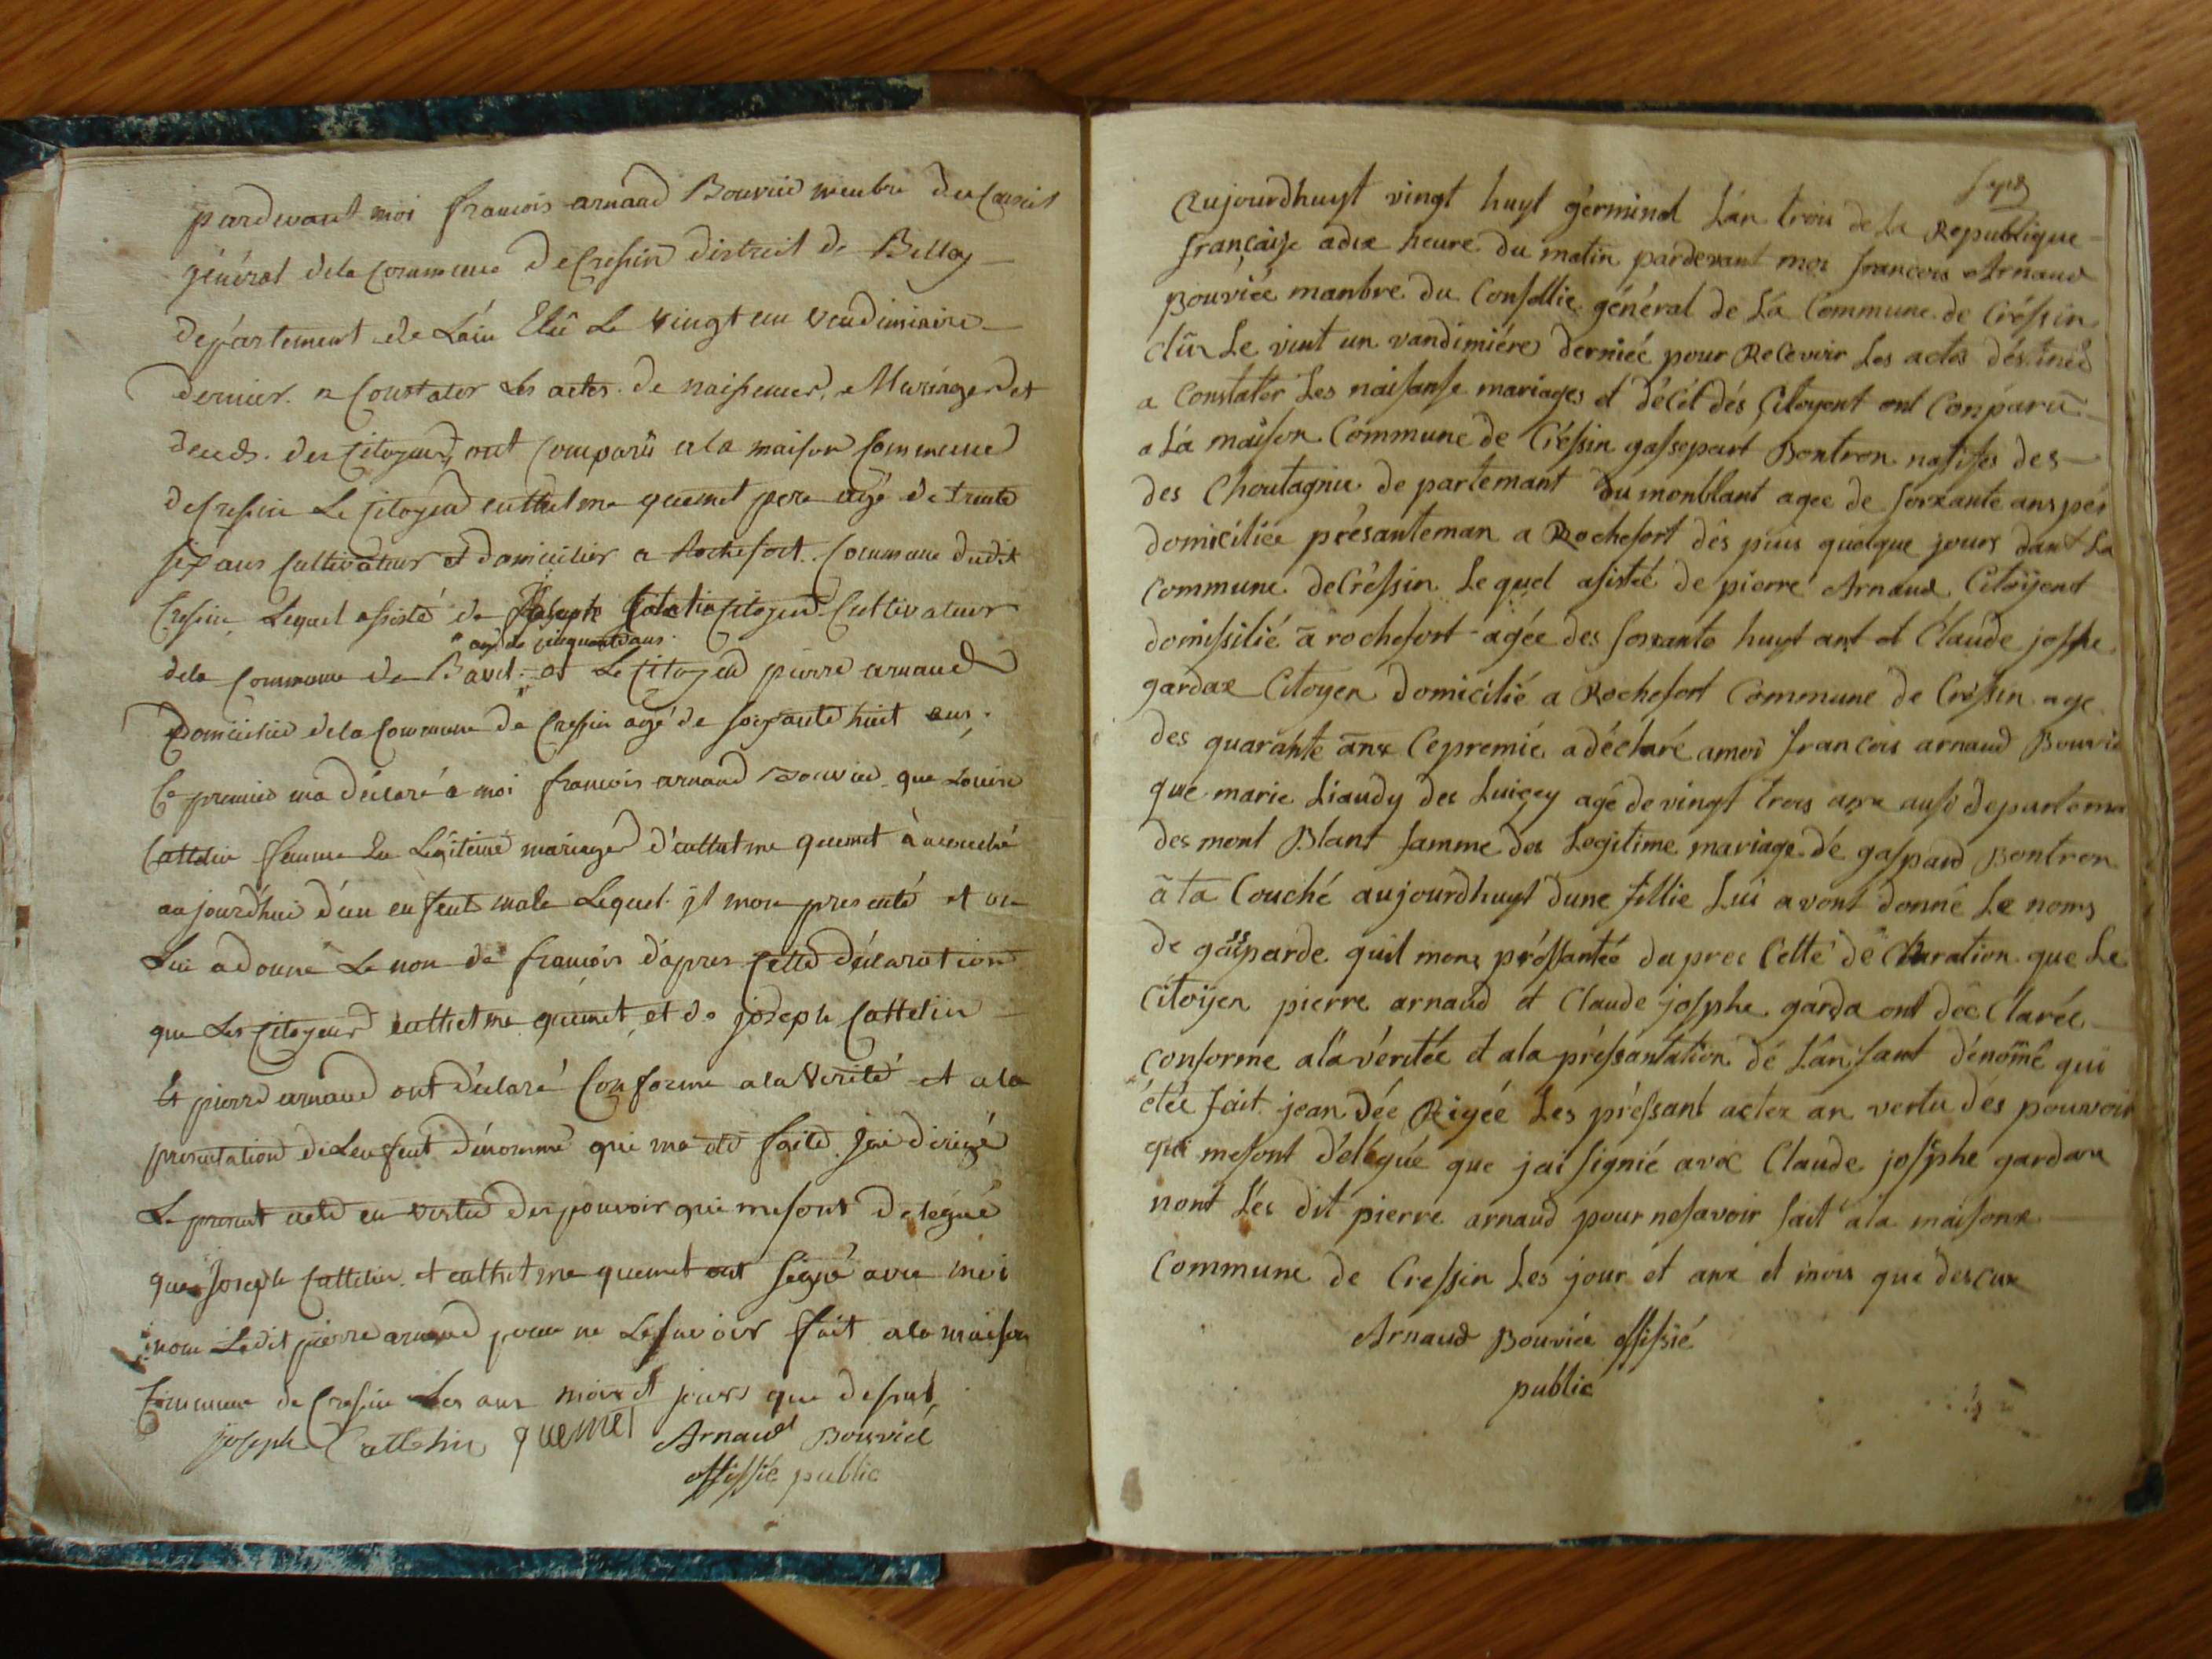 pardevant moi francois arnaud Bouvié membre du Conseil
général dela Commune de Cressin district de Belley
département de Lain Elû Le vingt un vendimiaire
dernier a Constater Les actes de naissances, Mariages et
deces des Citoyens, ont Comparû a la maison Commune
de Cressin Le Citoyen enthelme quemet pere agé de trente
six ans Cultivateur et domicilier a Rochefort Commune dudit
Cressin, Lequel assisté de Joseph Catelin Citoyen Cultivateur
agé de cinquante ans
dela Commune de et Le Citoyen pierre arnaud
Domicilié dela Commune de Cressin agé de soixante huit ans,
Ce premier ma déclaré a moi francois arnaud Bouvié que Louise
Cattelin femme En Légitime mariage d'enthelme quemet à accouché
aujourd'hui d'un enfent male Lequel jl mon presenté et on
Lui a donné Le nom de francois d'apres Cette déclaration
que Les Citoyens enthelme quemet, et de joseph Cattelin
Et pierre arnaud ont déclaré Conforme a la Verité et a la
presentation de Lenfent dénommé qui ma été faite, Jai dirigé
Le present acte en vertu des pouvoir qui me sont delégué
que Joseph Cattelin et enthelme quemet ont signé avec moi
non Ledit pierre arnaud pour ne Le savoir fait a la maison
Commune de Cressin Les ans mois et jours que dessus,
joseph Cattelin quemet Arnaud Bouvié
offissié public
sept
Aujourdhuyt vingt huyt gérminal Lán trois de la Republique
française adix heure du matin pardevant moi francois Arnaud
Bouviée manbre du Consellie général de Lá Commune de Créssin
élû Le vint un vandimiére derniée pour Recevoir Les actes déstinéd
a Constatér Les naisanse mariages et décét dés Citoyent ont Conparû
a Lá maison Commune de Créssin gassepart Bontron natifes des
des Choutagnie de partemant du monblant agee de soixante ans pér
domiciliée présanteman a Rochefort dês puis quelque jours dant La
Commune de Créssin Lequel asistéé de pierre Arnaud Citoÿent
domissilié à rochefort agée des soixante huyt ant et Claude josphe
gardax Citoyen domicilié a Rochefort Commune de Créssin age
des quarante anx Cepremié adéclaré amoi francois arnaud Bouvié
que marie Liaudy des Luiçey agé de vingt trois anx ausi departema
des mont Blant famme des Legitime mariage dé gaspard Bontron
à ta Couché aujourdhuyt dune fillie Lui avont donné Le noms
de gasparde quil mons préssantée daprec Cette déClaration que Le
Citoÿen pierre arnaud et Claude josphe garda ont déé Clarée
conforme ala véritée et ala préssantation dé Lánfant dénomé qui
étée fait jean dée Rigéé Les préssant actex an vertu dés pouvoir
qui mesont délégué que jai signié avéc Claude josphe gardax
nont Lés dit pierre arnaud pour nesavoir fait ala maisonx
Commune de Cressin Les jour ét anx et mois que descux
Arnaud Bouviée offissié
public